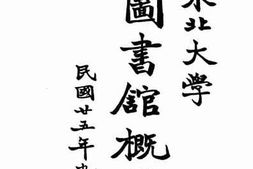 東北大学
圖書舘概
民國廿五年